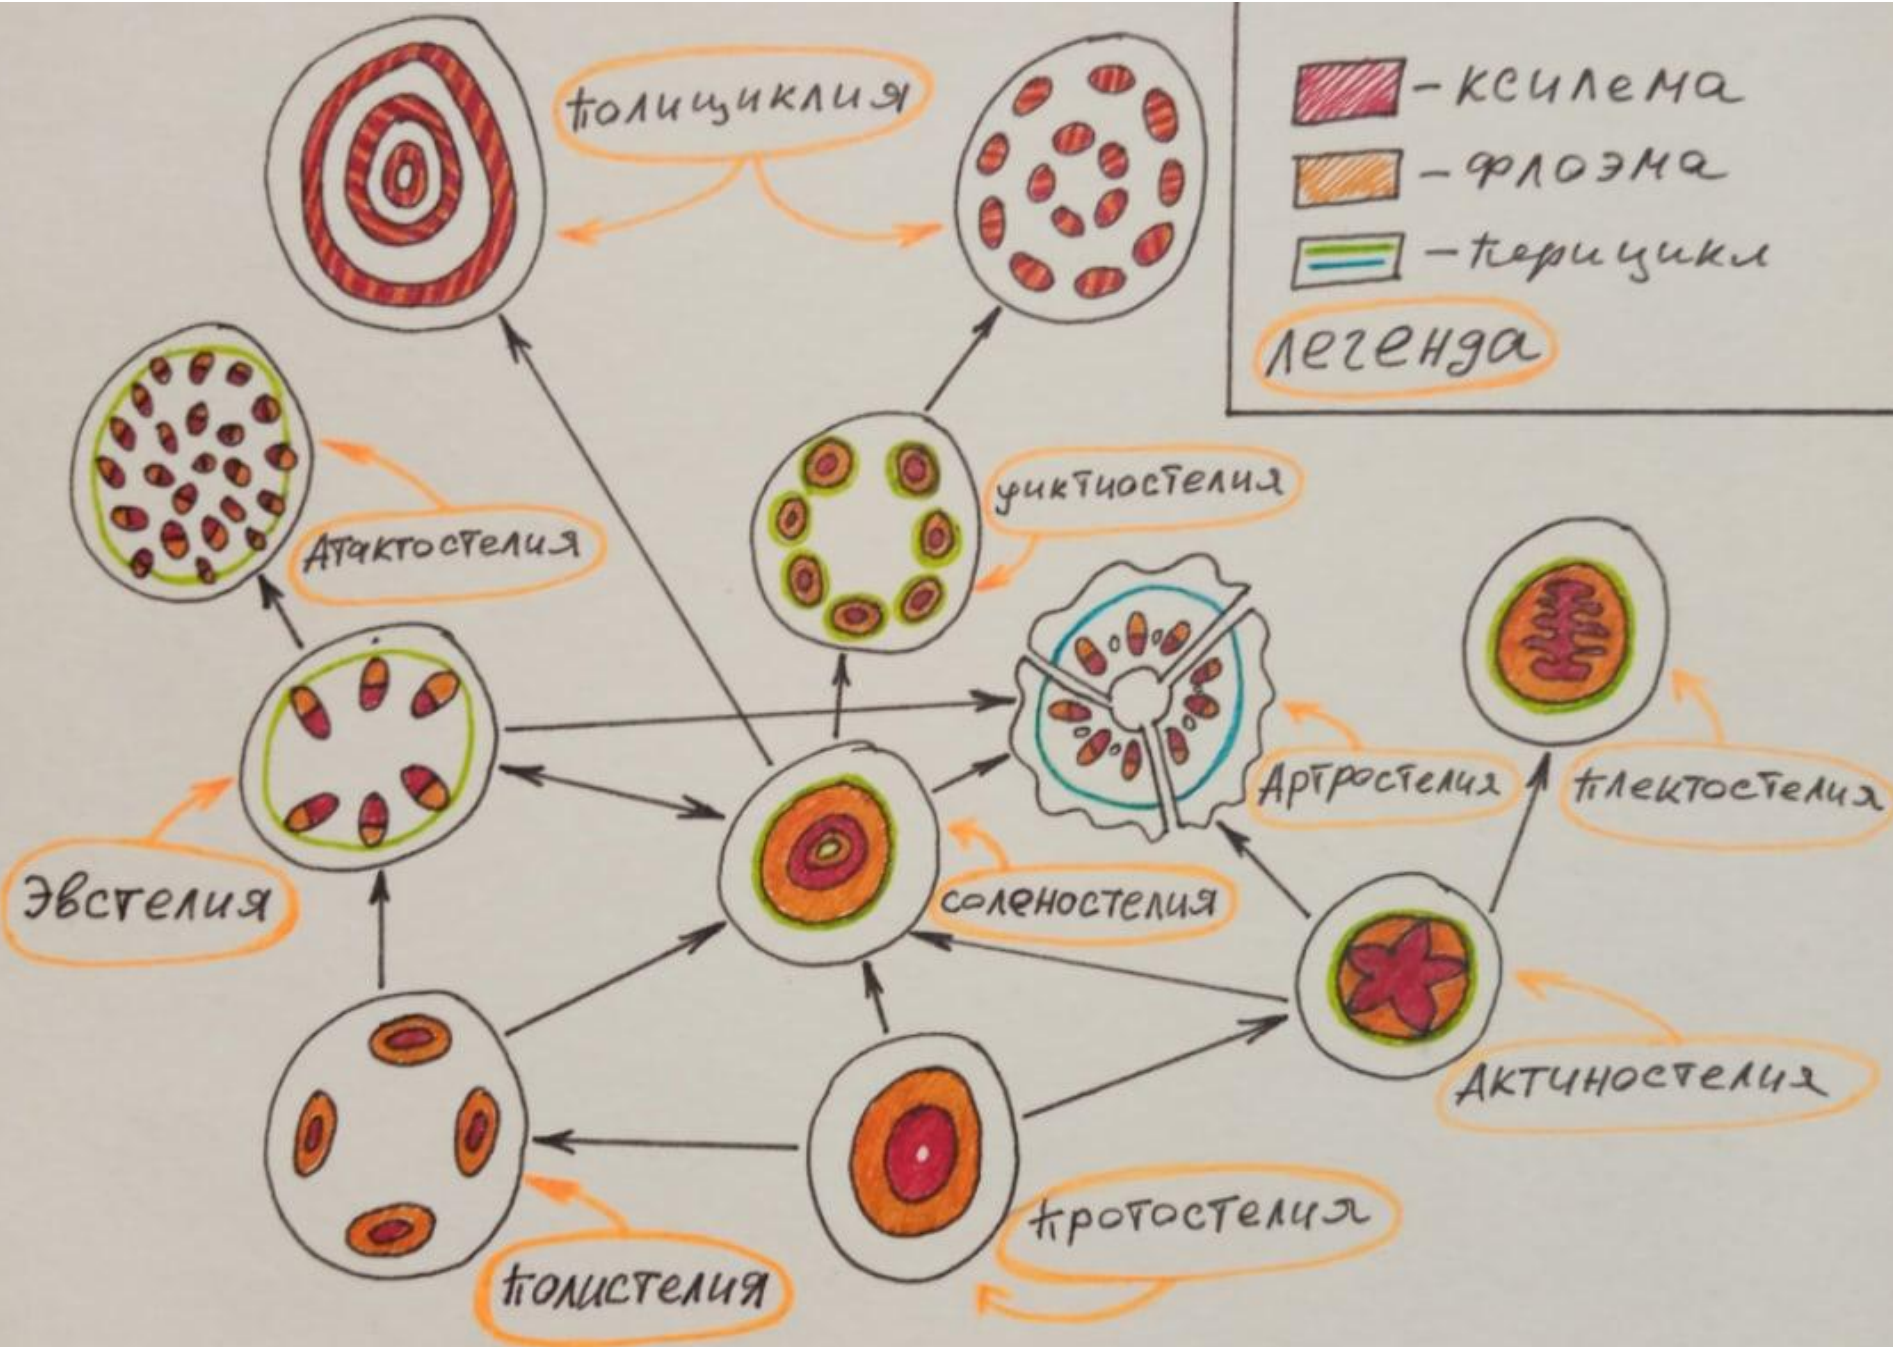 полициклия
- ксилема
- флоэма
- перицикл
легенда
диктиостелия
Атактостелия
Артростелия
плектостелия
Эвстелия
соленостелия
Актиностелия
протостелия
полистелия